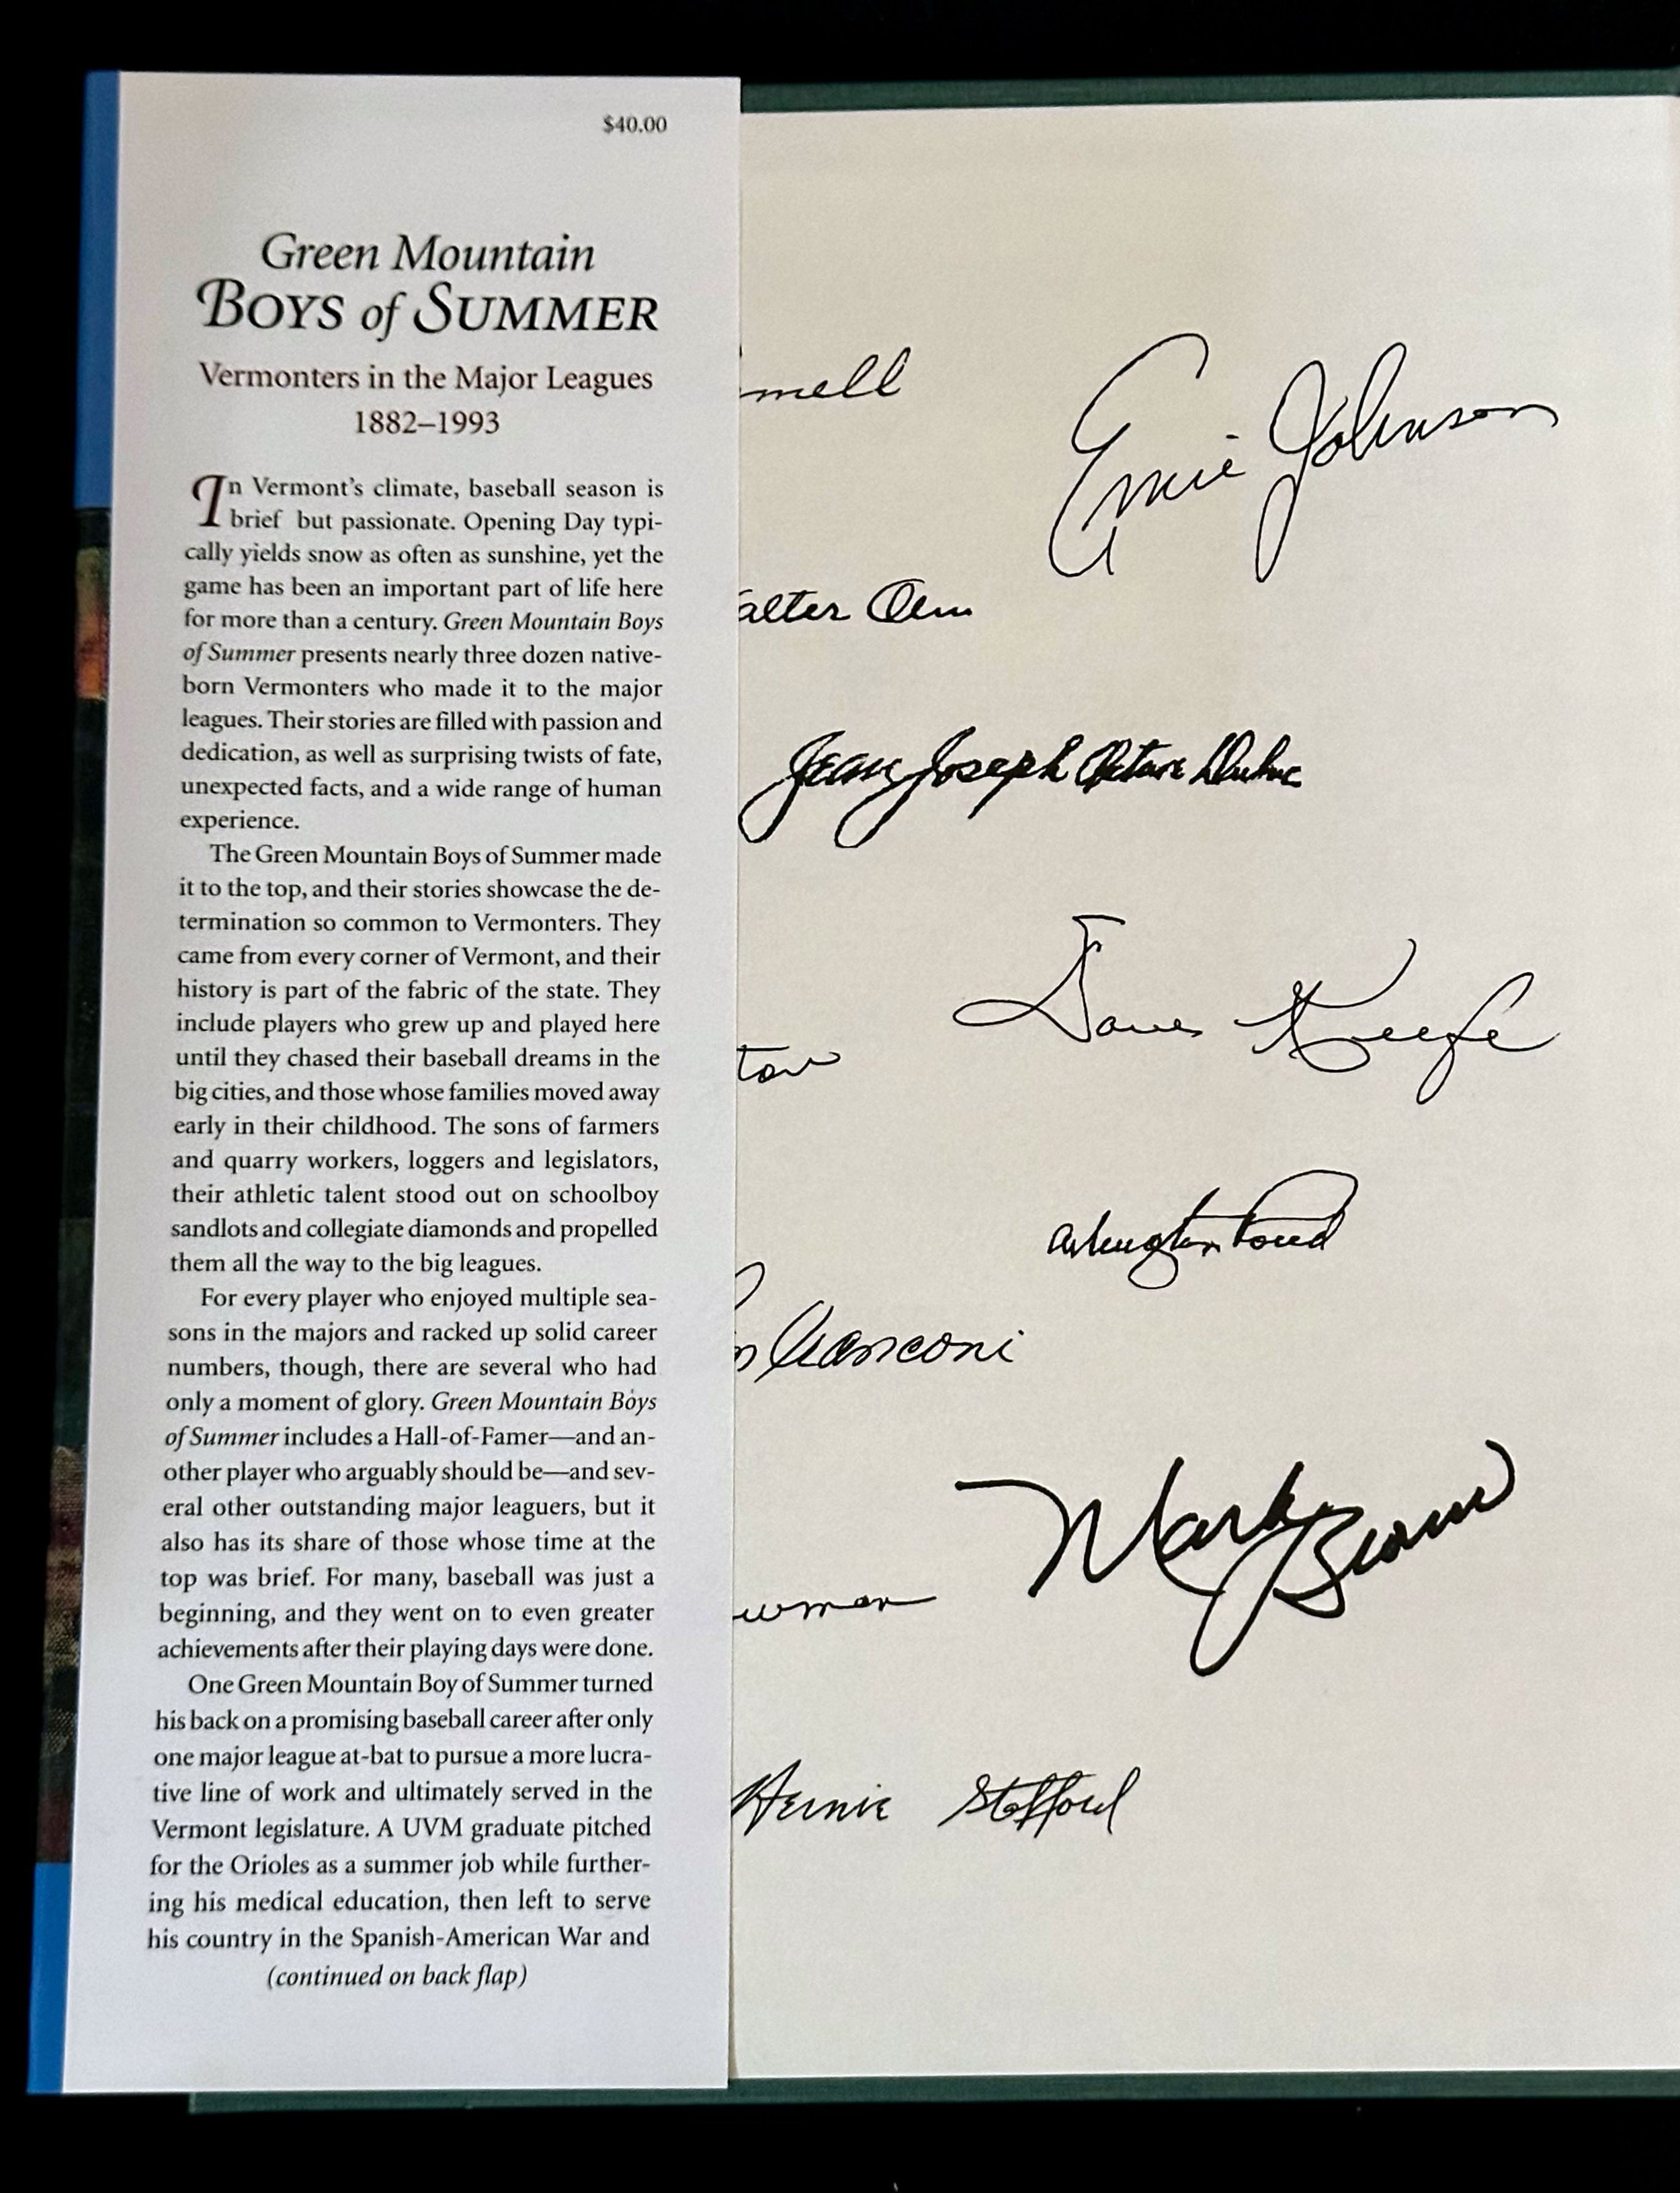 $40.00
Green Mountain
BOYS of SUMMER
Vermonters in the Major Leagues
1882–1993
In Vermont's climate, baseball season is
brief but passionate. Opening Day typi-
cally yields snow as often as sunshine, yet the
game has been an important part of life here
for more than a century. Green Mountain Boys
of Summer presents nearly three dozen native-
born Vermonters who made it to the major
leagues. Their stories are filled with passion and
dedication, as well as surprising twists of fate,
unexpected facts, and a wide range of human
experience.
The Green Mountain Boys of Summer made
it to the top, and their stories showcase the de-
termination so common to Vermonters. They
came from every corner of Vermont, and their
history is part of the fabric of the state. They
include players who grew up and played here
until they chased their baseball dreams in the
big cities, and those whose families moved away
early in their childhood. The sons of farmers
and quarry workers, loggers and legislators,
their athletic talent stood out on schoolboy
sandlots and collegiate diamonds and propelled
them all the way to the big leagues.
For every player who enjoyed multiple sea-
sons in the majors and racked up solid career
numbers, though, there are several who had
only a moment of glory. Green Mountain Boys
of Summer includes a Hall-of-Famer—and an-
other player who arguably should be—and sev-
eral other outstanding major leaguers, but it
also has its share of those whose time at the
top was brief. For many, baseball was just a
beginning, and they went on to even greater
achievements after their playing days were done.
One Green Mountain Boy of Summer turned
his back on a promising baseball career after only
one major league at-bat to pursue a more lucra-
tive line of work and ultimately served in the
Vermont legislature. A UVM graduate pitched
for the Orioles as a summer job while further-
ing his medical education, then left to serve
his country in the Spanish-American War and
(continued on back flap)
mell
Ernie Johnson
alter
Jean Joseph Octave Dubuc
Dave Keefe
ton
Arlington Pond
wman
Mark Brown
Stafford